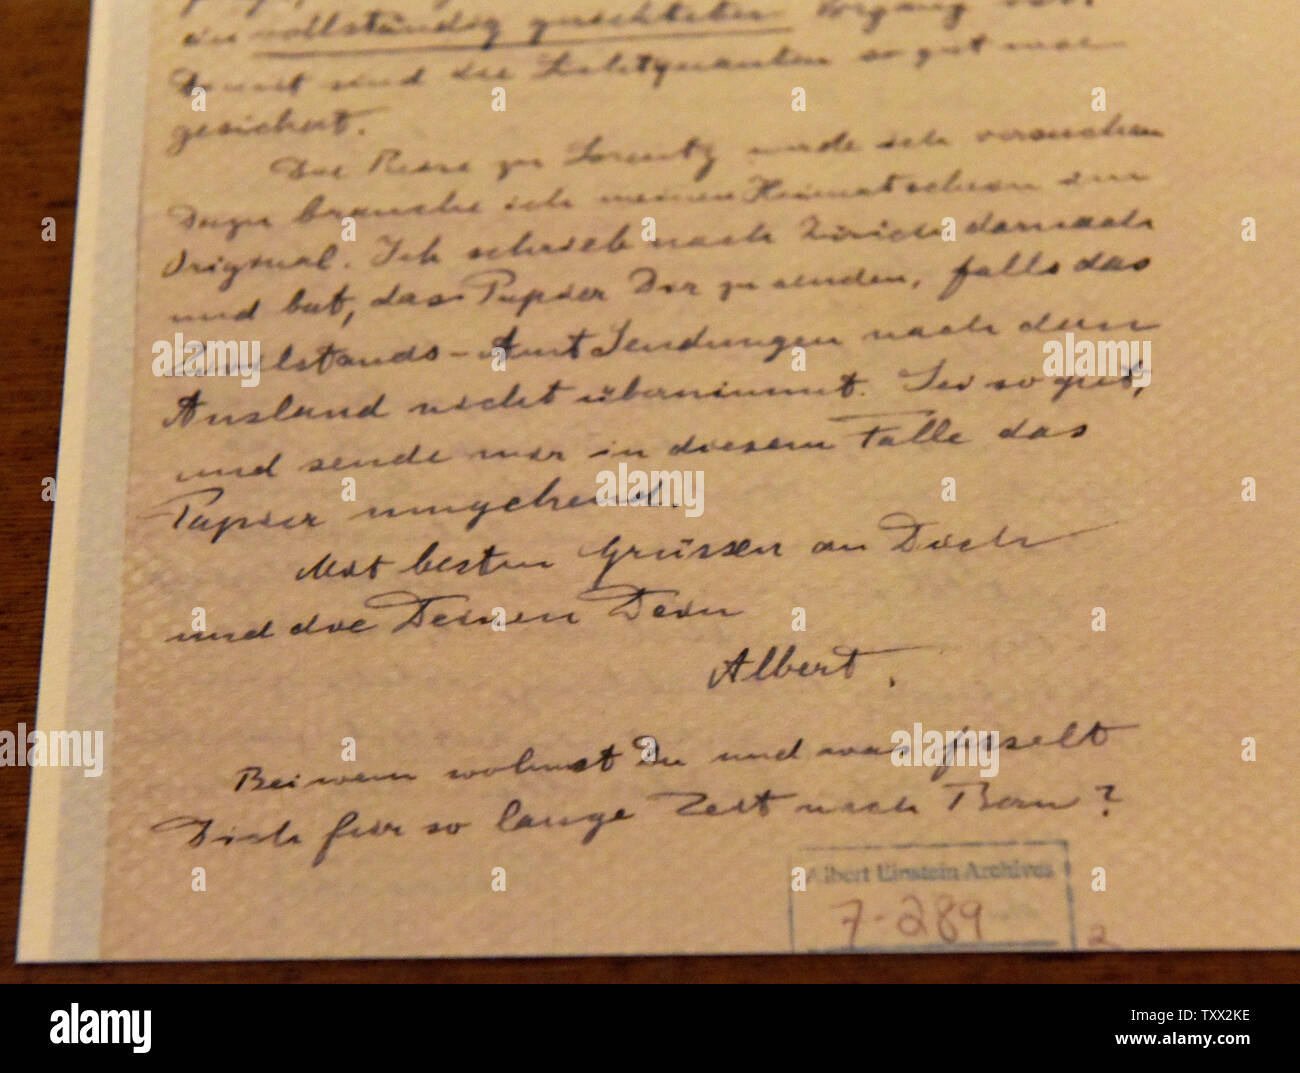 ein vollständig gerichteter Vorgang ist.
Damit sind die Lichtquanten so gut wie
gesichert.
Die Reise zu Lorentz werde ich versuchen
Dazu brauche ich meinen Heimatschein im
Original. Ich schrieb nach Zürich darnach
und bat, das Papier Dir zu senden, falls das
Zivilstands-Amt Sendungen nach dem
Ausland nicht übernimmt. Sei so gut,
und sende mir in diesem Falle das
Papier umgehend.
Mit besten Grüssen an Dich
und die Deinen Dein
Albert.
Bei wem wohnst Du und was fesselt
Dich für so lange Zeit nach Bern?
Albert Einstein Archives
7-289
2
alamy
Image ID: TXX2KE
www.alamy.com